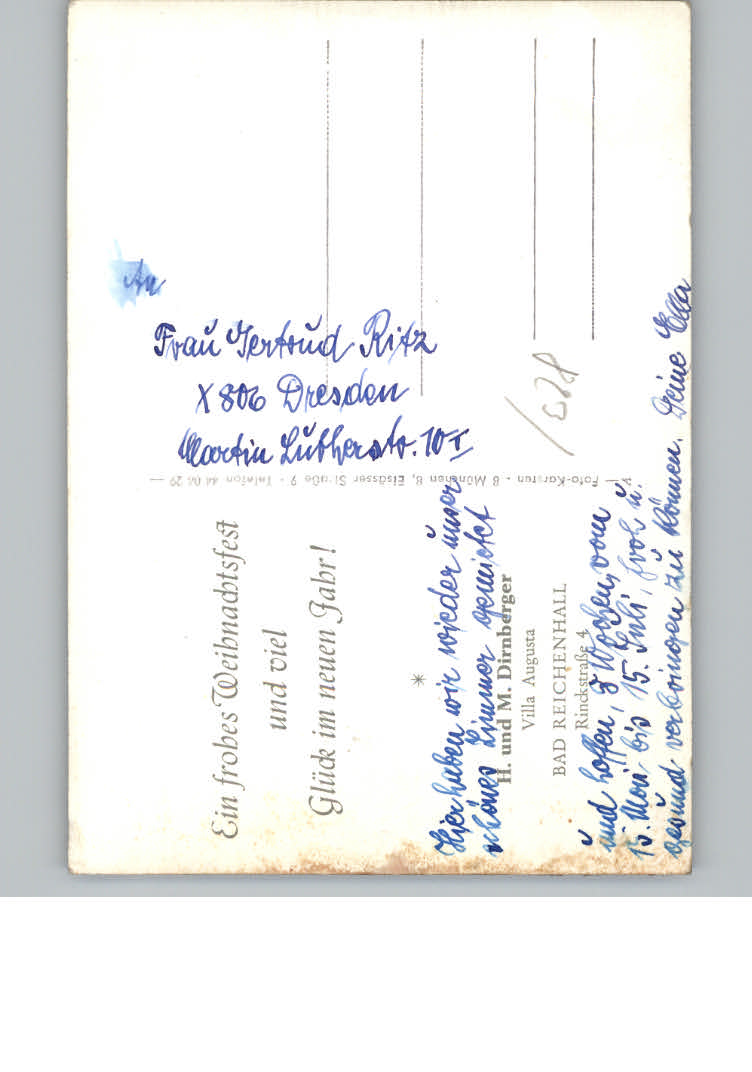 Ein frohes Weihnachtsfest
und viel
Glück im neuen Jahr!
*
Hier haben wir wieder unser
schönes Zimmer gemietet
H. und M. Dirnberger
Villa Augusta
BAD REICHENHALL
Rinckstraße 4
und hoffen, Wochen, vom
15. Mai bis 15. Juli, froh u.
gesund verbringen zu können. Deine Ella
Foto-Karsten - 8 München 8, Elsässer Straße 9 - Telefon 44 08 29
An
Frau Gertrud Ritz
X 806 Dresden
Martin Lutherstr. 10 I